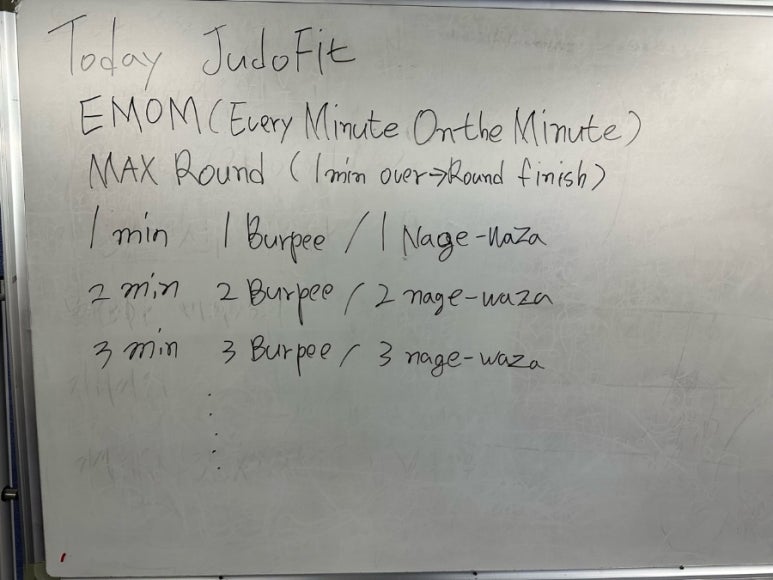 Today JudoFit
EMOM (Every Minute On the Minute)
MAX Round (1min over→Round finish)
1 min 1 Burpee / 1 Nage-waza
2 min 2 Burpee / 2 nage-waza
3 min 3 Burpee / 3 nage-waza